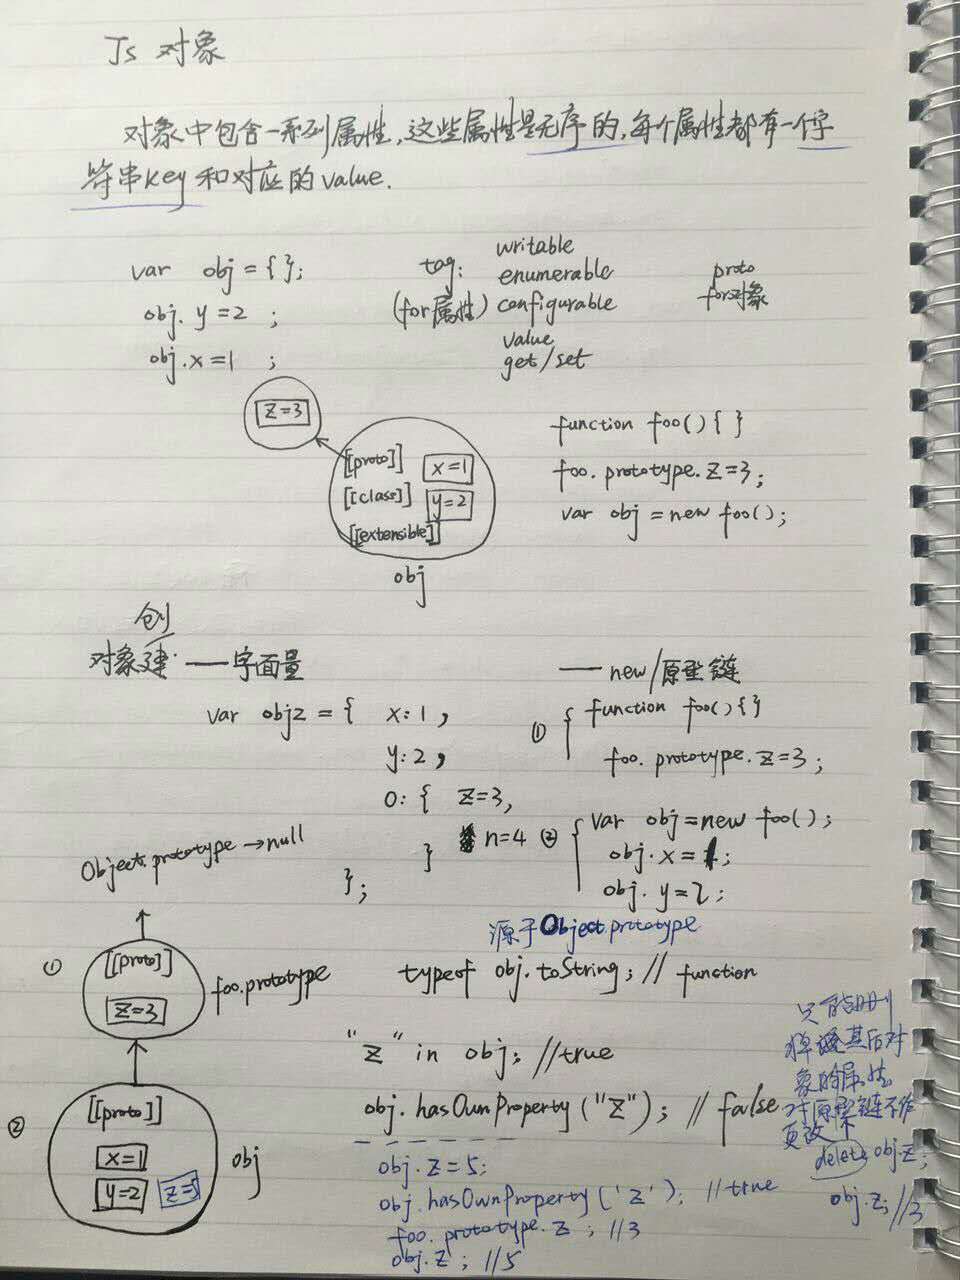 Js 对象
对象中包含一系列属性,这些属性是无序的,每个属性都有一个字
符串key和对应的value.
var obj = { };
obj. y = 2 ;
obj.x = 1 ;
tag:
(for属性)
writable
enumerable
configurable
value
get/set
proto
for对象
z=3
[[proto]]
[[class]]
[[extensible]]
x=1
y=2
obj
function foo(){ }
foo. prototype. z=3;
var obj = new foo();
创
对象建 —— 字面量
var obj2 = { x: 1 ,
y: 2 ,
0: { z=3,
n=4
}
};
—— new/原型链
① { function foo(){}
foo. prototype. z=3 ;
② { var obj=new foo();
obj. x = 1;
obj. y=2;
Object.prototype → null
① [[proto]]
z=3
foo.prototype
② [[proto]]
x=1
y=2 z=5
obj
源于Object.prototype
typeof obj.toString; // function
"z" in obj; //true
obj. hasOwnProperty ("z"); // false
obj. z = 5;
obj. hasOwnProperty ('z'); //true
foo. prototype. z ; //3
obj. z ; //5
只能删
掉 对
象的属性,
对原型链不作
更改
delete obj.z;
obj.z; //3